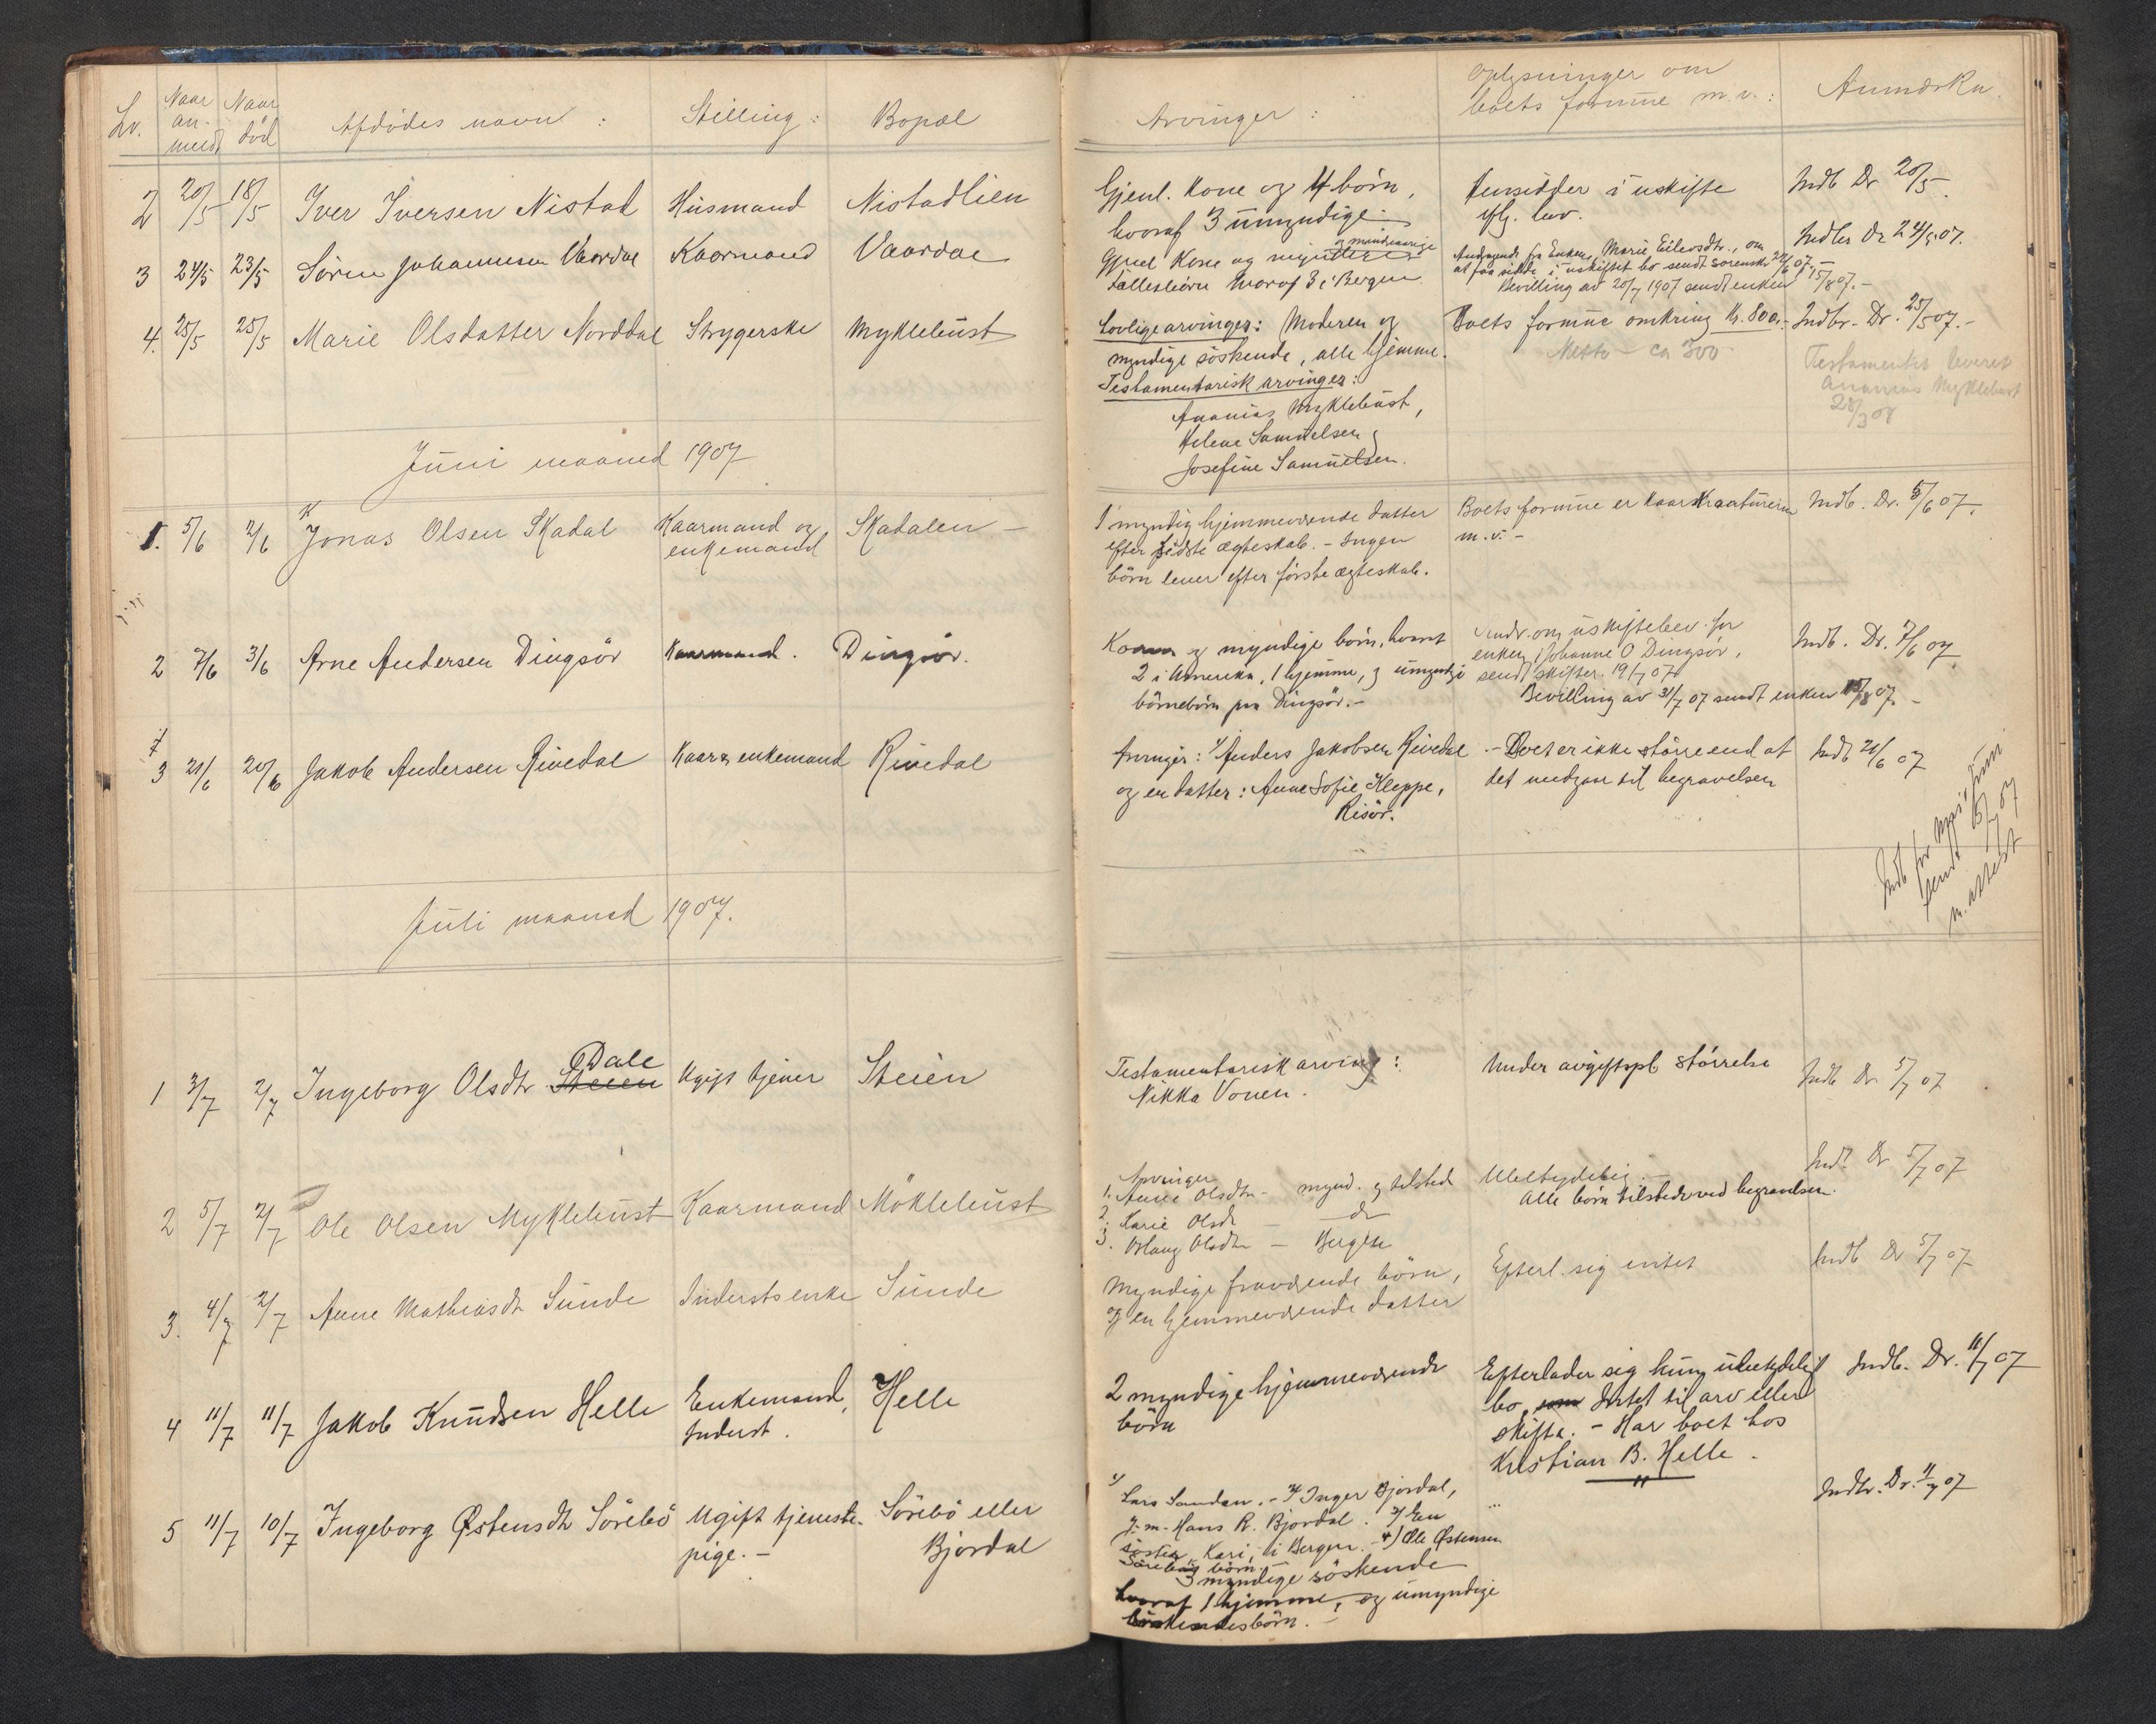 Lv.
Naar anmeldt
Naar död
Afdödes navn :
Stilling :
Bopæl
2 20/5 18/5 Iver Iversen Nistad Husmand Nistadlien
3 24/5 23/5 Sören Johannesen Vaardal Kaarmand Vaardal
4. 25/5 25/5 Marie Olsdatter Norddal Strygerske Myklebust
Juni maaned 1907
1. 5/6 2/6 Jonas Olsen Skadal Kaarmand og Skadalen –
enkemand
2 7/6 3/6 Arne Andersen Dingsör Kaarmand. Dingsör.
3 21/6 20/6 Jakob Andersen Rivedal Kaar & enkemand Rivedal
Juli maaned 1907.
Dale
1 3/7 2/7 Ingeborg Olsdtr Steien Ugift tjener Steien
2 5/7 2/7 Ole Olsen Myklebust Kaarmand Möklebust
3. 4/7 2/7 Anne Mathiasdtr Sunde Inderstsenke Sunde
4 11/7 11/7 Jakob Knudsen Helle Enkemand, Helle
Inderst.
5 11/7 10/7 Ingeborg Østensdtr Sörebö Ugift tjeneste- Sörebö eller
pige. – Bjordal
Arvinger :
Oplysninger om
boets formue m.v. :
Anmærkn.
Gjenl. Kone og 4 börn,
hvoraf 3 umyndige.
Hensidder i uskifte
iflg. lov.
Indb Dr 20/5.
og mindreaarige
Gjenl Kone og myndige
Fællesbörn hvoraf 3 i Bergen.
Andragende fra Enken, Marie Eilevsdtr., om
at faa sidde i uskiftet bo sendt sorenskr
Bevilling av 20/7 1907 sendt enken 15/8 07. –
Indb Dr 24/5 07.
Lovlige arvinger: Moderen og
myndige söskende, alle hjemme.
Testamentarisk arvinger:
Ananias Myklebust,
Helene Samuelsen
Josefine Samuelsen.
Boets formue omkring Kr. 800. –
Netto – ca 300
Indb. Dr. 25/5 07. –
Testamentet leveret
Ananias Myklebust
28/3 08
1 myndig hjemmeværende datter
efter sidste ægteskab. – Ingen
börn lever efter förste ægteskab.
Boets formue er kaarkreaturerne
m.v. –
Indb. Dr. 5/6 07.
Kone og myndige börn, hvoraf
2 i Amerika, 1 hjemme, og umyndige
börnebörn paa Dingsör. –
Andr. om uskiftebev. for
enken, Johanne O Dingsör,
sendt skifter. 19/7 07
Bevilling av 31/7 07 sendt enken 15/8 07. –
Indb. Dr. 7/6 07
Arvinger: 1/ Anders Jakobsen Rivedal
og en datter: Anne Sofie Kleppe,
Risör.
– Boet er ikke större end at
det medgaar til begravelsen
Indb 21/6 07
Indb for
Juni
sendt 5/7 07
m. attest
Testamentarisk arving :
Nikka Vonen.
Under avgiftspl störrelse
Indb Dr 5/7 07
Arvinger
1. Anne Olsdtr – mynd. og tilsted
2. Karie Olsdtr – do
3. Olsdtr – Bergen
Ubetydelig. –
Alle börn tilstede ved begravelsen.
Indb Dr 5/7 07
Myndige fraværende börn,
og en hjemmeværende datter
Efterl. sig intet
Indb Dr 5/7 07
2 myndige hjemmeværende
börn
Efterlader sig kun ubetydelig
bo, som Intet til arv eller
skifte. – Har boet hos
Kristian B. Helle.
Indb. Dr. 11/7 07
1/ Lars Sandan. – 2/ Inger Bjordal,
g.m. Hans R. Bjordal. 3/ En
söster, Kari, i Bergen. – 4) Ole Østensen
Sörebös börn.
3 myndige söskende
hvoraf 1 hjemme, og umyndige
söskendesbörn. –
Indb. Dr. 11/7 07